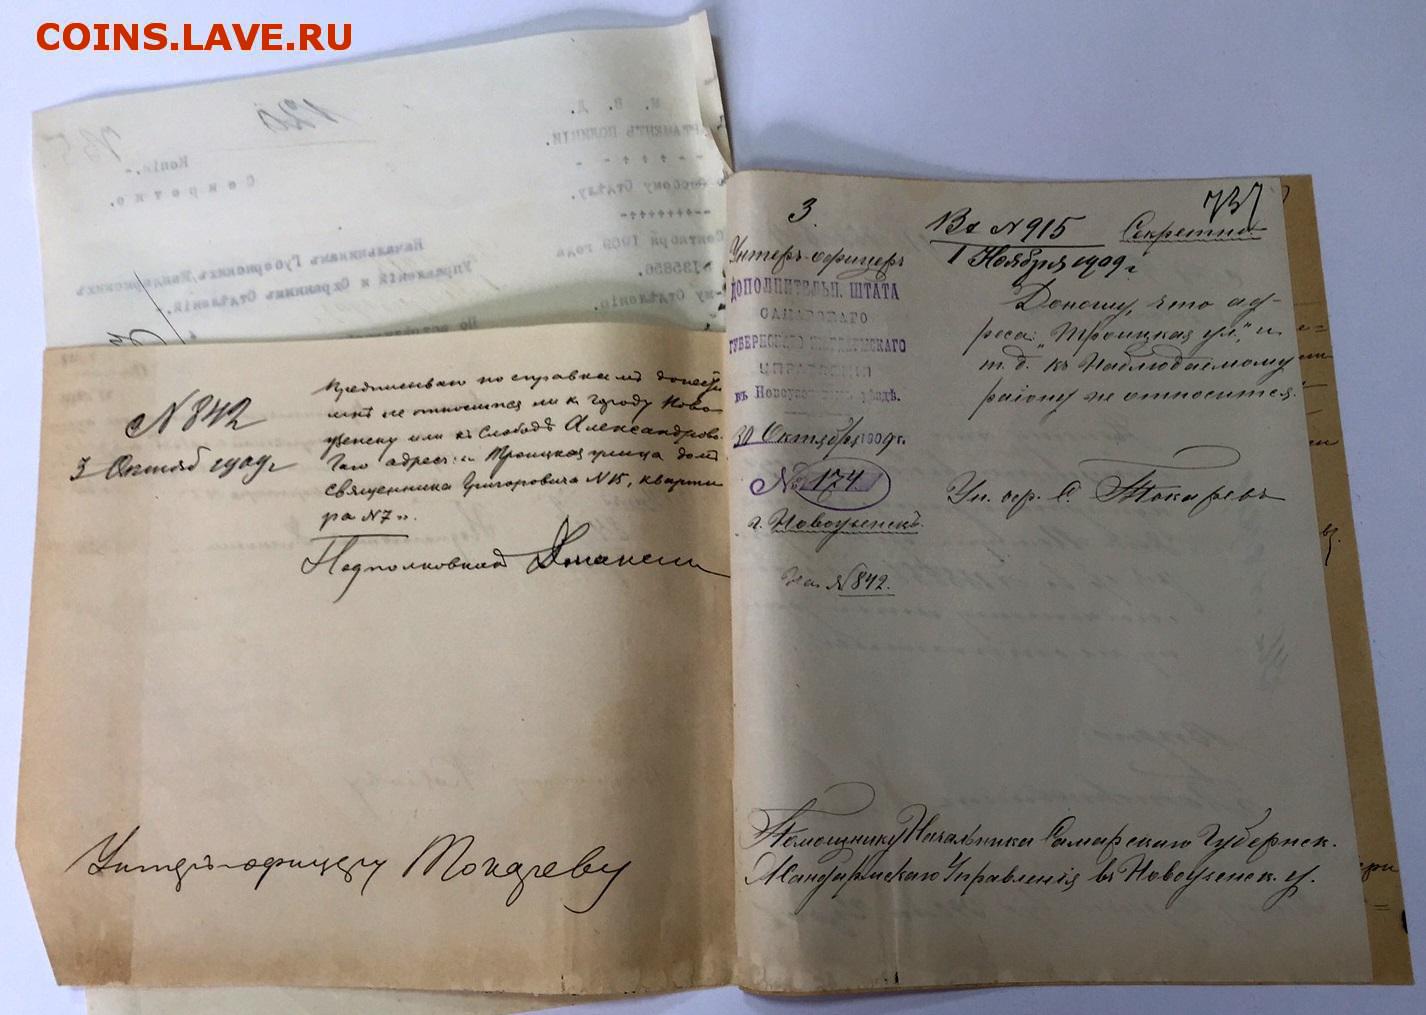 COINS.LAVE.RU
М. В. Д.
ДЕПАРТАМЕНТЪ ПОЛИЦІИ.
Особому Отдѣлу.
Сентября 1909 года
№135856.
Отдѣленію.
Копія.
Секретно.
Начальникамъ Губернскихъ Жандармскихъ
Управленій и Охранныхъ Отдѣленій.
№ 842
3 Октяб 1909 г
Предписываю по справкамъ донести
мнѣ не относится ли къ городу Ново
узенску или къ Слободѣ Александрово
Гаю адресъ: "Троицкая улица домъ
священника Григоровича №15, кварти
ра №7".
Подполковникъ
Унтеръ-офицеру Токареву
3.
737
Унтеръ-офицеръ
ДОПОЛНИТЕЛЬН. ШТАТА
САМАРСКАГО
ГУБЕРНСКАГО ЖАНДАРМСКАГО
УПРАВЛЕНІЯ
въ Новоузенскомъ уѣздѣ.
30 Октября 1909 г.
№ 174
г. Новоузенскъ.
На №842.
Вх №915 Секретно
1 Ноября 1909 г
Доношу, что ад-
реса: "Троицкая ул.," и
т. д. къ Наблюдаемому
району не относится.
Ун. оф. С. Токаревъ
Помощнику Начальника Самарскаго Губернск.
Жандармскаго Управленія въ Новоузенск. у.